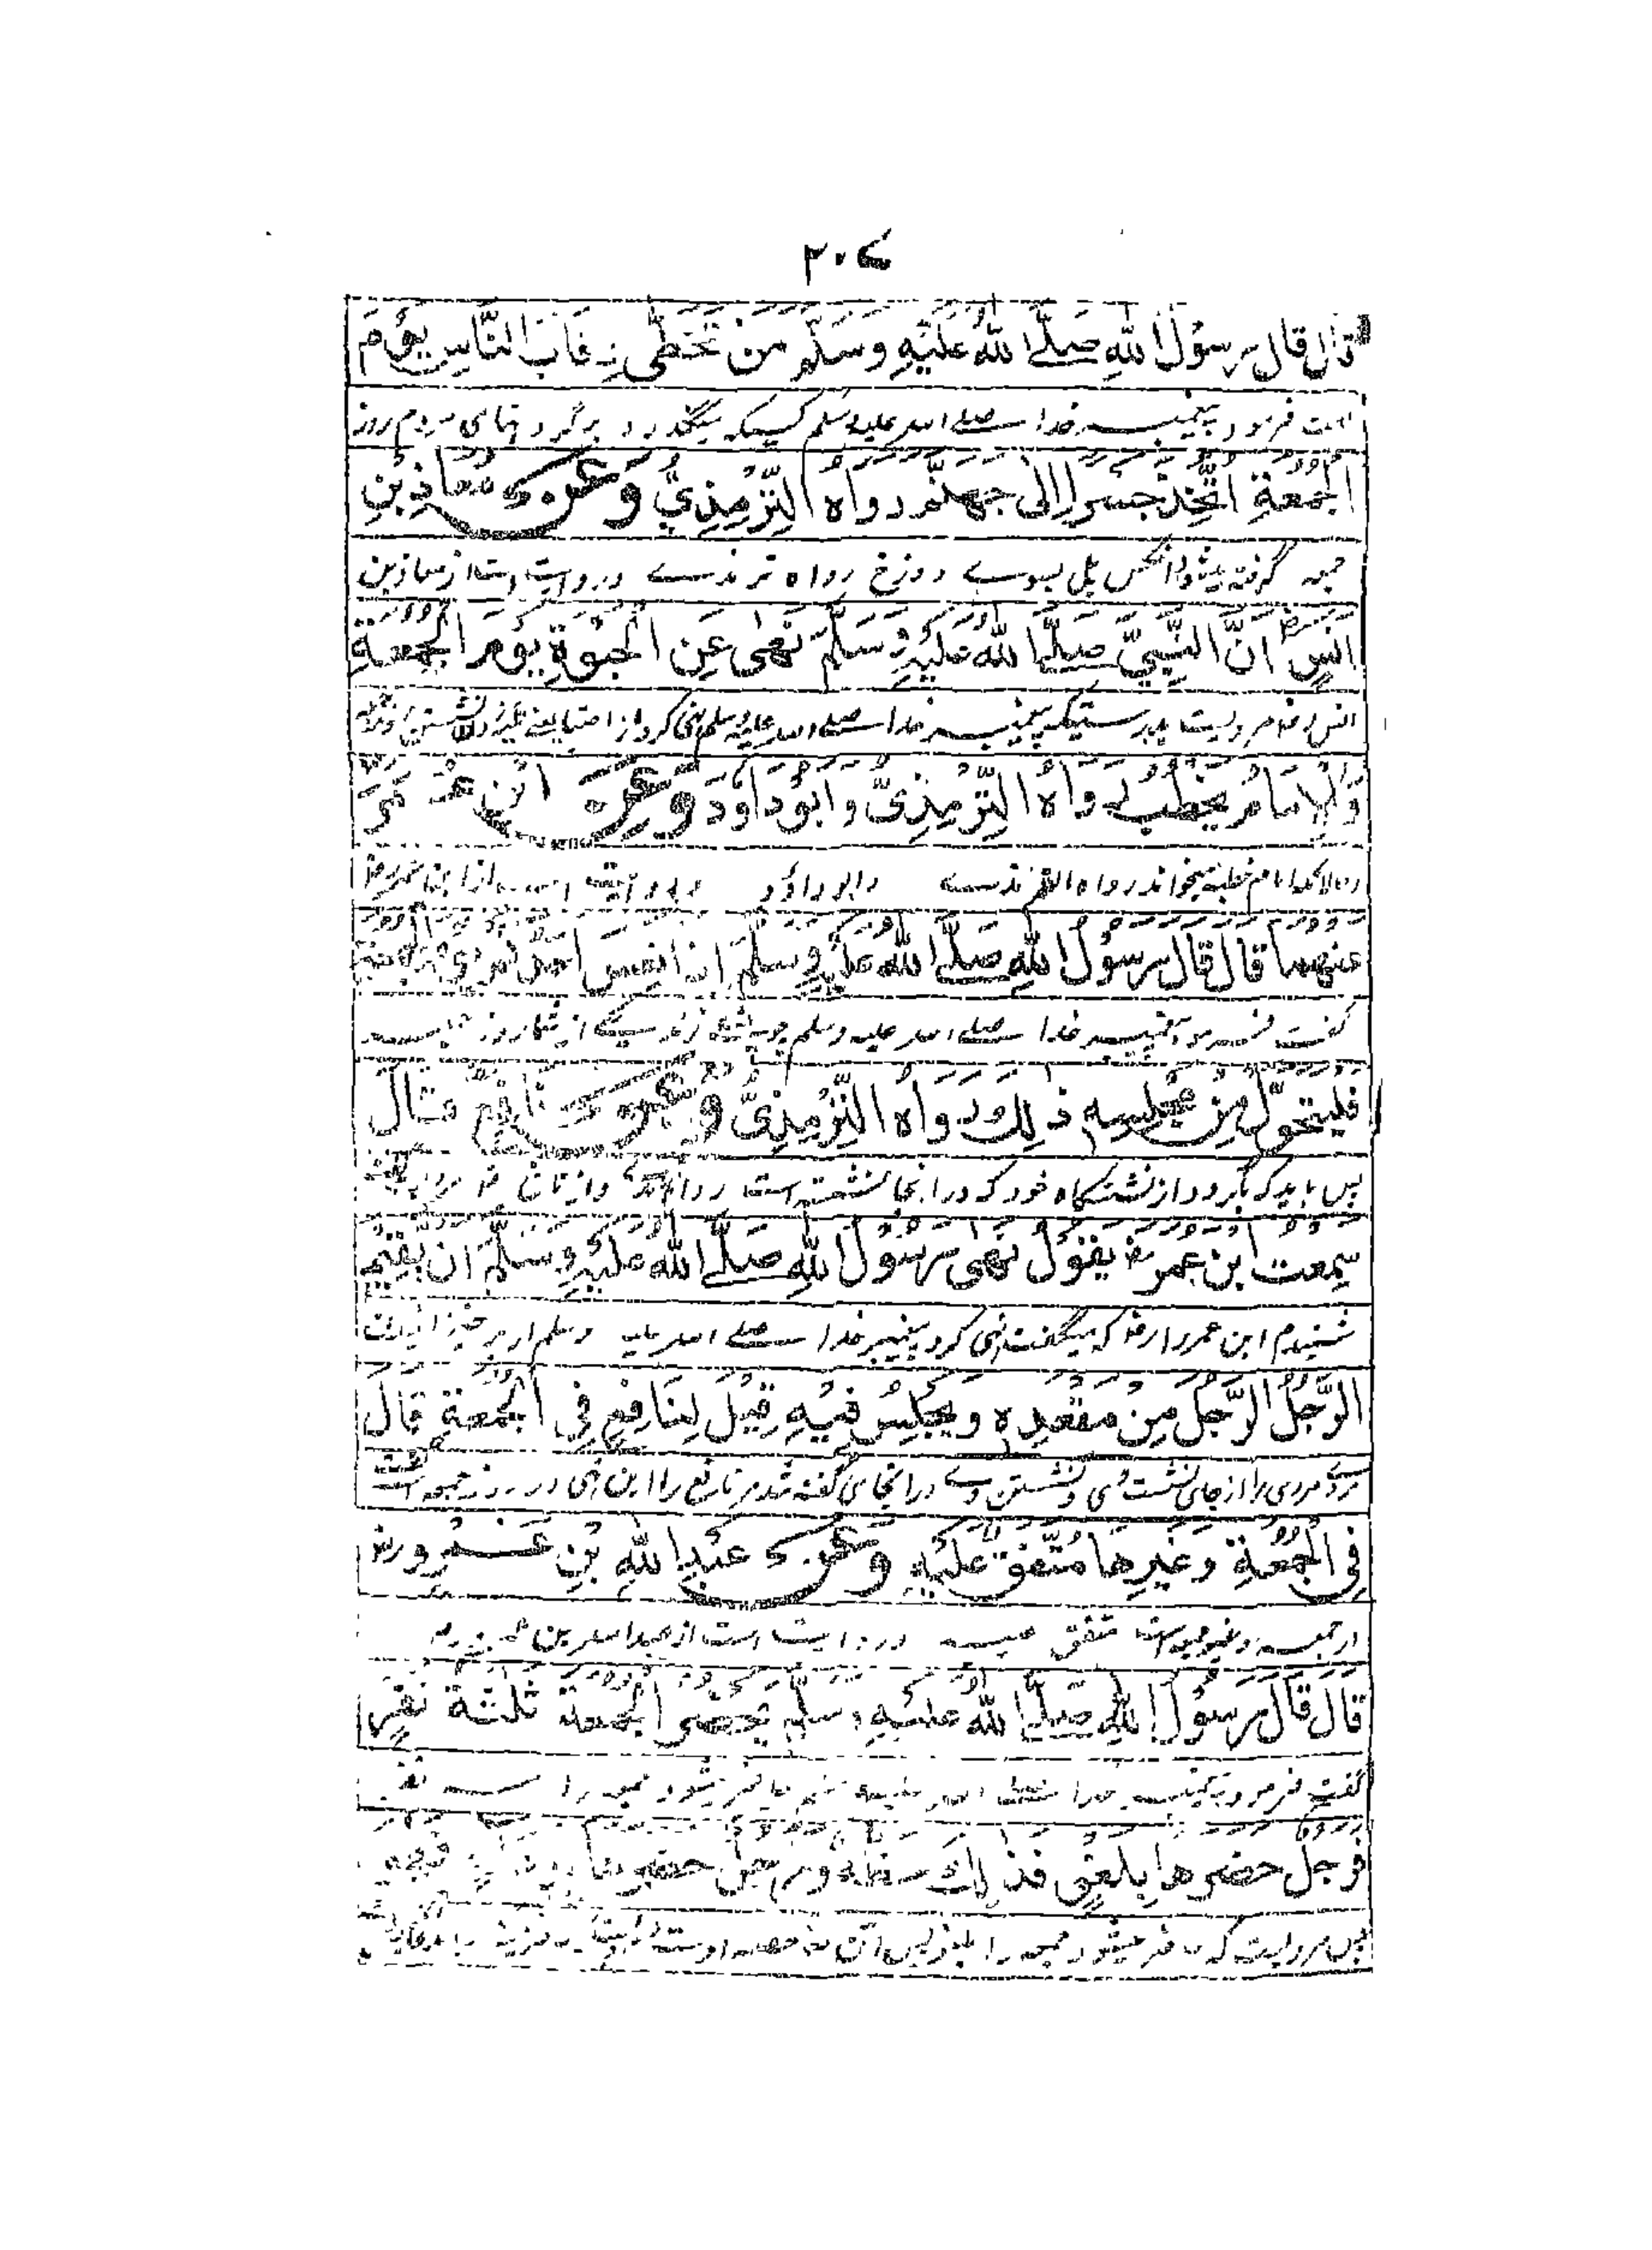 ۲۰۷
قال قال رسول الله صلى الله عليه وسلم من تخطى رقاب الناس يوم
فرمود پیغمبر خدا صلے الله علیه وسلم کسیکه میگذرد بر گردنهای مردم روز
الجمعة اتخذ جسرا الى جهنم رواه الترمذي وعن معاذ بن
جمعه گرفته میشود آنکس پل بسوے دوزخ رواه ترمذے و روایت است از معاذ بن
انس ان النبي صلى الله عليه وسلم نهى عن الحبوة يوم الجمعة
انس بدرستیکه پیغمبر خدا صلے الله علیه وسلم نهی کرد از
والامام يخطب رواه الترمذي وابوداود وعن ابن عمر
امام خطبه میخواند رواه الترمذے وابوداؤد و روایت است از ابن عمر
عنهما قال قال رسول الله صلى الله عليه وسلم اذا نعس احدكم يوم الجمعة
گفت فرمود پیغمبر خدا صلے الله علیه وسلم از شما روز
فليتحول من مجلسه ذلك رواه الترمذي وعن نافع قال
پس باید که بگردد از نشستگاه خود که در آنجا نشسته است رواه واز نافع
سمعت ابن عمر رض يقول نهى رسول الله صلى الله عليه وسلم ان يقيم
شنیدم ابن عمر را رض که میگفت نهی کرد پیغمبر خدا صلے الله علیه وسلم از
الرجل الرجل من مقعده ويجلس فيه قيل لنافع في الجمعة قال
مردی را از جای نشست وی ونشستن وے در انجای گفته شد مر نافع را این نهی در روز جمعه است گفت
في الجمعة وغيرها متفق عليه وعن عبد الله بن عمرو رض
در جمعه وغیر جمعه است متفق علیه و روایت است از عبد الله بن عمرو
قال قال رسول الله صلى الله عليه وسلم يحضر الجمعة ثلثة نفر
گفت فرمود پیغمبر خدا صلے الله علیه وسلم حاضر میشود جمعه را سه نفر
فرجل حضرها بلغو فذلك حظه ورجل حضرها
پس مردیست که حاضر میشود جمعه را بلغو پس آن حصه اوست